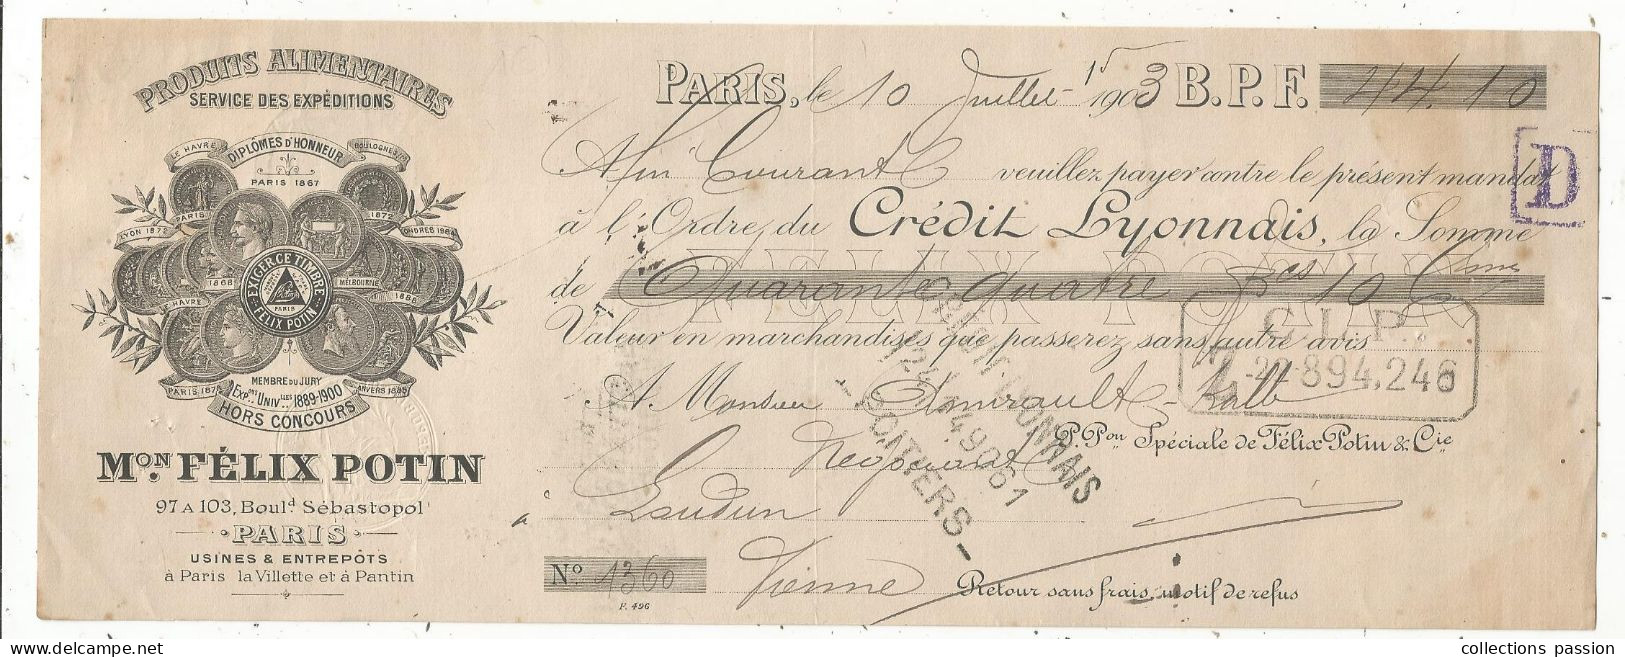 PRODUITS ALIMENTAIRES
SERVICE DES EXPÉDITIONS
LE HAVRE DIPLÔMES D'HONNEUR BOULOGNE
PARIS 1867
PARIS 1872
LYON 1872 LONDRES
1868 MELBOURNE
EXIGER CE TIMBRE
PARIS
FELIX POTIN
LE HAVRE
MEMBRE DU JURY
PARIS ANVERS 1885
EXP.ons UNIV.LLES 1889-1900
HORS CONCOURS
Mon. FÉLIX POTIN
97 A 103, Bould Sébastopol
PARIS
USINES & ENTREPÔTS
à Paris la Villette et à Pantin
PARIS, le 10 Juillet 1903 B.P.F. 44.10
D
A fin Courant veuillez payer contre le présent mandat
à l'Ordre du Crédit Lyonnais, la Somme
de Quarante quatre Fcs 10 Cmes
FELIX POTIN
Valeur en marchandises que passerez sans autre avis
C.L.P.
Z-22-894,246
A Monsieur
P. Pon Spéciale de Félix Potin & Cie
Négociant
à Loudun
No. 1360 Vienne Retour sans frais, motif de refus
F. 496
LYONNAIS
49061
-POITIERS-
collections passion